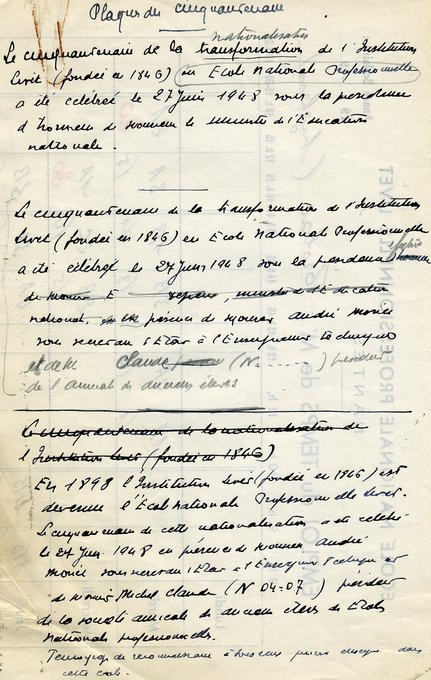 Plaque du cinquantenaire
nationalisation
Le cinquantenaire de la transformation de l'Institution
Livet (fondée en 1846) en Ecole Nationale Professionnelle
a été célébré le 27 Juin 1948 sous la présidence
d'honneur de Monsieur le Ministre de l'Education
nationale.
Le cinquantenaire de la transformation de l'Institution
Livet (fondée en 1846) en Ecole Nationale Professionnelle
a été célébré le 27 Juin 1948 sous la présidence
de Monsieur ministre de l'Education
national, présence de Monsieur André
sous secrétaire d'Etat à l'Enseignement technique
et de M Claude (N ......) président
de l'amicale des anciens élèves
Le cinquantenaire de la nationalisation de
l'Institution Livet (fondée en 1846)
En 1898 l'Institution Livet (fondée en 1846) est
devenue l'Ecole Nationale Professionnelle Livet.
Le cinquantenaire de cette nationalisation a été célébré
le 27 Juin 1948 en présence de Monsieur André
sous secrétaire d'Etat à l'Enseignement Technique et
de Monsieur Michel Claude (N 04-07) président
de la société amicale des anciens élèves des Ecoles
Nationales professionnelles.
Témoignage de reconnaissance à tous ceux
cette école.